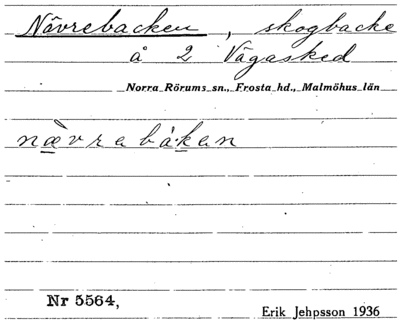 Nävrebacken, skogbacke
å 2 Vägasked
Norra Rörums sn., Frosta hd., Malmöhus län
næ̀vrabákan
Nr 5564,
Erik Jehpsson 1936